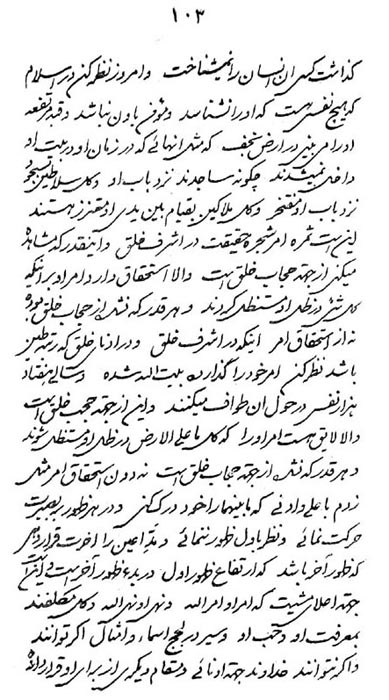 ۱۰۳
کذاشت کسی ان انسان را نمیشناخت و امروز نظر کن در اسلام
که هیچ نفسی هست که او را نشناسد و موقن باو نباشد و قبه مرتفعه
او را میبینی در ارض نجف که مثل انهائی که در زمان او در بیت او
داخل نمیشدند چگونه ساجدند نزد باب او و کل سلاطین
نزد باب او مفتخر و کل ملاکین بقیام بین یدی او معتزز هستند
این است ثمره امر شجره حقیقت در اشرف خلق و اینقدر که مشاهده
میکنی از جهة حجاب خلق است والا استحقاق دارد امر او بر اینکه
کل شئ در ظل او مستظل گردند و هر قدر که نشد از حجاب خلق بوده
نه از استحقاق امر اینکه در اشرف خلق و در ادنای خلق که طین
باشد نظر کن امر خود را گذارده بیت الله شده و سالی هفتاد
هزار نفس در حول ان طواف میکنند و این از جهة حجب خلق است
والا لایق هست امر او را که کل ما علی الارض در ظل او مستظل شوند
و هر قدر که نشد از جهة حجاب خلق است نه دون استحقاق امر مثل
زدم باعلی و ادنی که ما بینهما را خود درک کنی و در هر ظهور ببصیرت
حرکت نمائی و نظر باول ظهور ننمائی و مد عین را اخرت قرار دهی
که ظهور آخر باشد که ارتفاع ظهور اول در بدء ظهور آخر است
جهة اعلای مشیت که امر او امر الله و نهی او نهی الله و کل مکلفند
بمعرفت او و حب او و سیر در لجج اسماء و امثال اگر توانند
و اگر نتوانند خداوند جهة ادنائی در مقام دیگری از برای او قرار داده